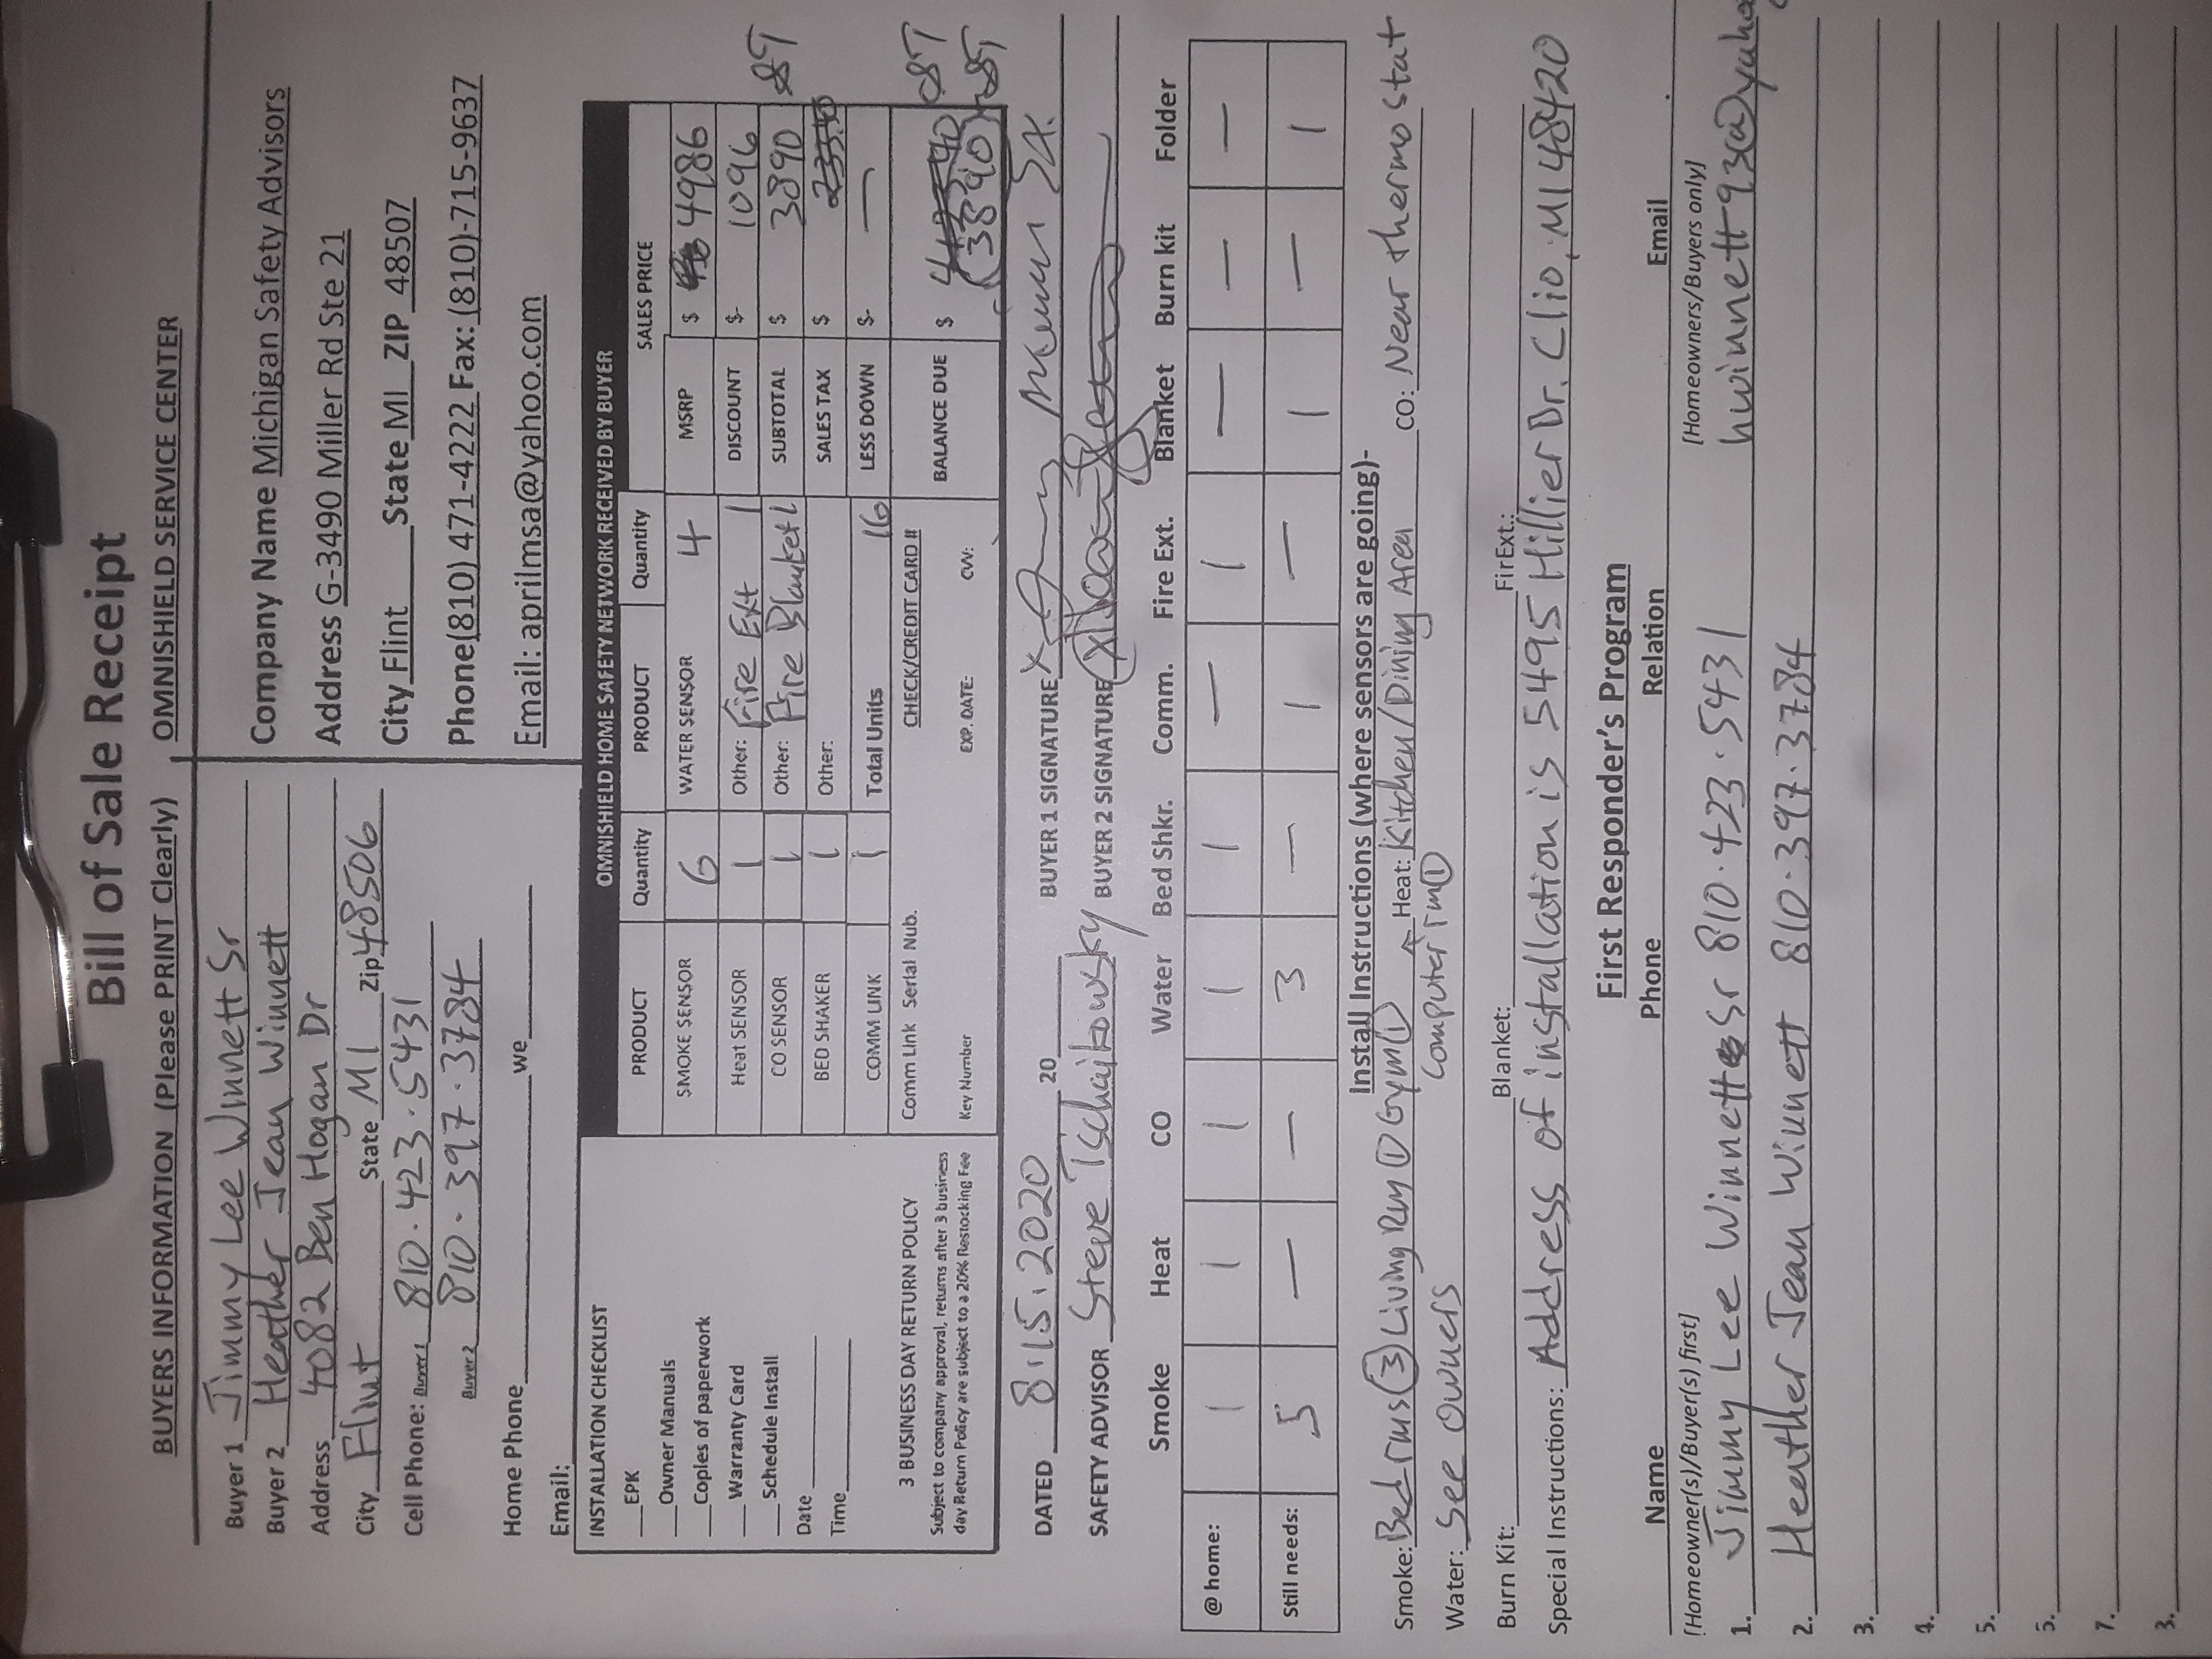 Bill of Sale Receipt
BUYERS INFORMATION (Please PRINT Clearly)
Buyer 1 Jimmy Lee Winnett Sr
Buyer 2 Heather Jean Winnett
Address 4082 Ben Hogan Dr
City Flint State MI Zip 48506
Cell Phone: Buyer 1 810.423.5431
Buyer 2 810.397.3784
Home Phone we
Email:
OMNISHIELD SERVICE CENTER
Company Name Michigan Safety Advisors
Address G-3490 Miller Rd Ste 21
City Flint State MI ZIP 48507
Phone(810) 471-4222 Fax: (810)-715-9637
Email: aprilmsa@yahoo.com
INSTALLATION CHECKLIST
__EPK
__Owner Manuals
__Copies of paperwork
__Warranty Card
__Schedule Install
Date
Time
3 BUSINESS DAY RETURN POLICY
Subject to company approval, returns after 3 business
day Return Policy are subject to a 20% Restocking Fee
OMNISHIELD HOME SAFETY NETWORK RECEIVED BY BUYER
PRODUCT Quantity PRODUCT Quantity SALES PRICE
SMOKE SENSOR 6 WATER SENSOR 4 MSRP $ 4986
Heat SENSOR 1 Other: Fire Ext 1 DISCOUNT $- 1096
CO SENSOR 1 Other: Fire Blanket 1 SUBTOTAL $ 3890
BED SHAKER 1 Other: SALES TAX $
COMM LINK 1 Total Units 16 LESS DOWN $- —
Comm Link Serial Nub. CHECK/CREDIT CARD # BALANCE DUE $
Key Number EXP. DATE: CVV: (3890)
DATED 8.15.2020 20 BUYER 1 SIGNATURE X
SAFETY ADVISOR Steve Tschaikowsky BUYER 2 SIGNATURE X
Smoke Heat CO Water Bed Shkr. Comm. Fire Ext. Blanket Burn kit Folder
@ home: 1 1 1 1 1 — 1 — — —
Still needs: 5 — — 3 — 1 — 1 — 1
Install Instructions (where sensors are going)-
Smoke: Bedrms (3) Living Rm (1) Gym (1) Heat: Kitchen/Dining Area CO: Near thermostat
Computer rm (1)
Water: See Owners
Burn Kit: Blanket: FirExt.:
Special Instructions: Address of installation is 5495 Hillier Dr. Clio, MI 48420
First Responder's Program
Name Phone Relation Email
[Homeowner(s)/Buyer(s) first] [Homeowners/Buyers only]
1. Jimmy Lee Winnett Sr 810.423.5431
2. Heather Jean Winnett 810.397.3784
3.
4.
5.
5.
7.
3.